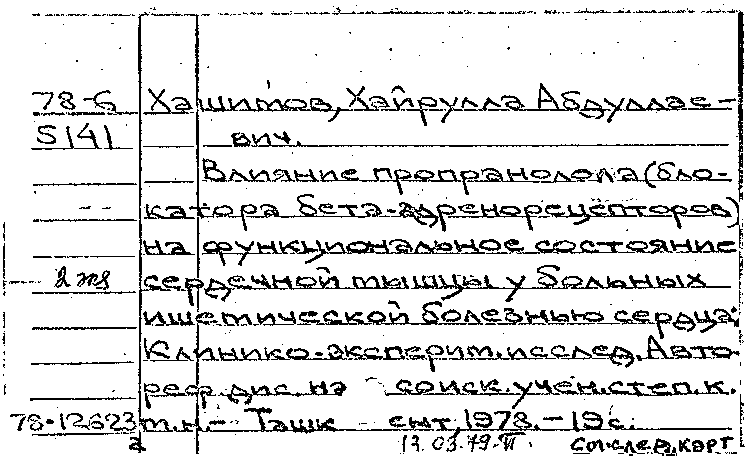 78-6 Хашимов, Хайрулла Абдуллае-
5141 вич.
Влияние пропранолола (бло-
катора бета-адренорецепторов)
на функциональное состояние
2 экз сердечной мышцы у больных
ишемической болезнью сердца:
Клинико-эксперим. исслед. Авто-
реф. дис. на соиск. учен. степ. к.
78-12623 м.н. - Ташк 1978. - 19 с.
2 13.03.79-П. см. след. карт